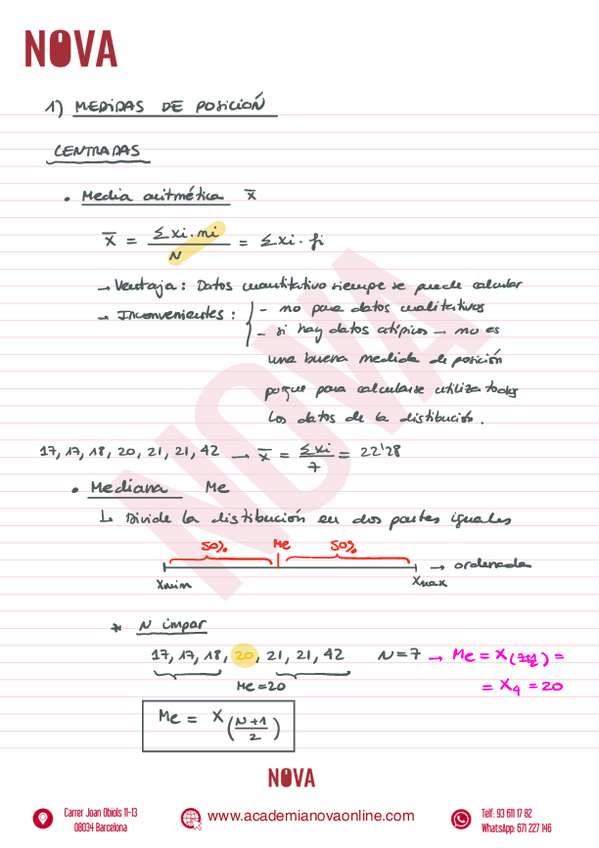 NOVA
1) MEDIDAS DE POSICIÓN
CENTRADAS
• Media aritmética x̄
x̄ = Σxi·ni / N = Σxi·fi
→ Ventaja: Datos cuantitativo siempre se puede calcular
→ Inconvenientes: - no para datos cualitativos
- si hay datos atípicos → no es
una buena medida de posición
porque para calcularse utiliza todos
los datos de la distibución.
17, 17, 18, 20, 21, 21, 42 → x̄ = Σxi / 7 = 22'28
• Mediana Me
↳ Divide la distribución en dos partes iguales
50% Me 50%
→ ordenada
Xmin Xmax
* N impar
17, 17, 18, 20, 21, 21, 42 N=7 → Me = X(7+1/2) =
Me=20 = X4 = 20
Me = X(N+1/2)
NOVA
Carrer Joan Obiols 11-13
08034 Barcelona
www.academianovaonline.com
Telf: 93 611 17 82
WhatsApp: 671 227 146
NOVA